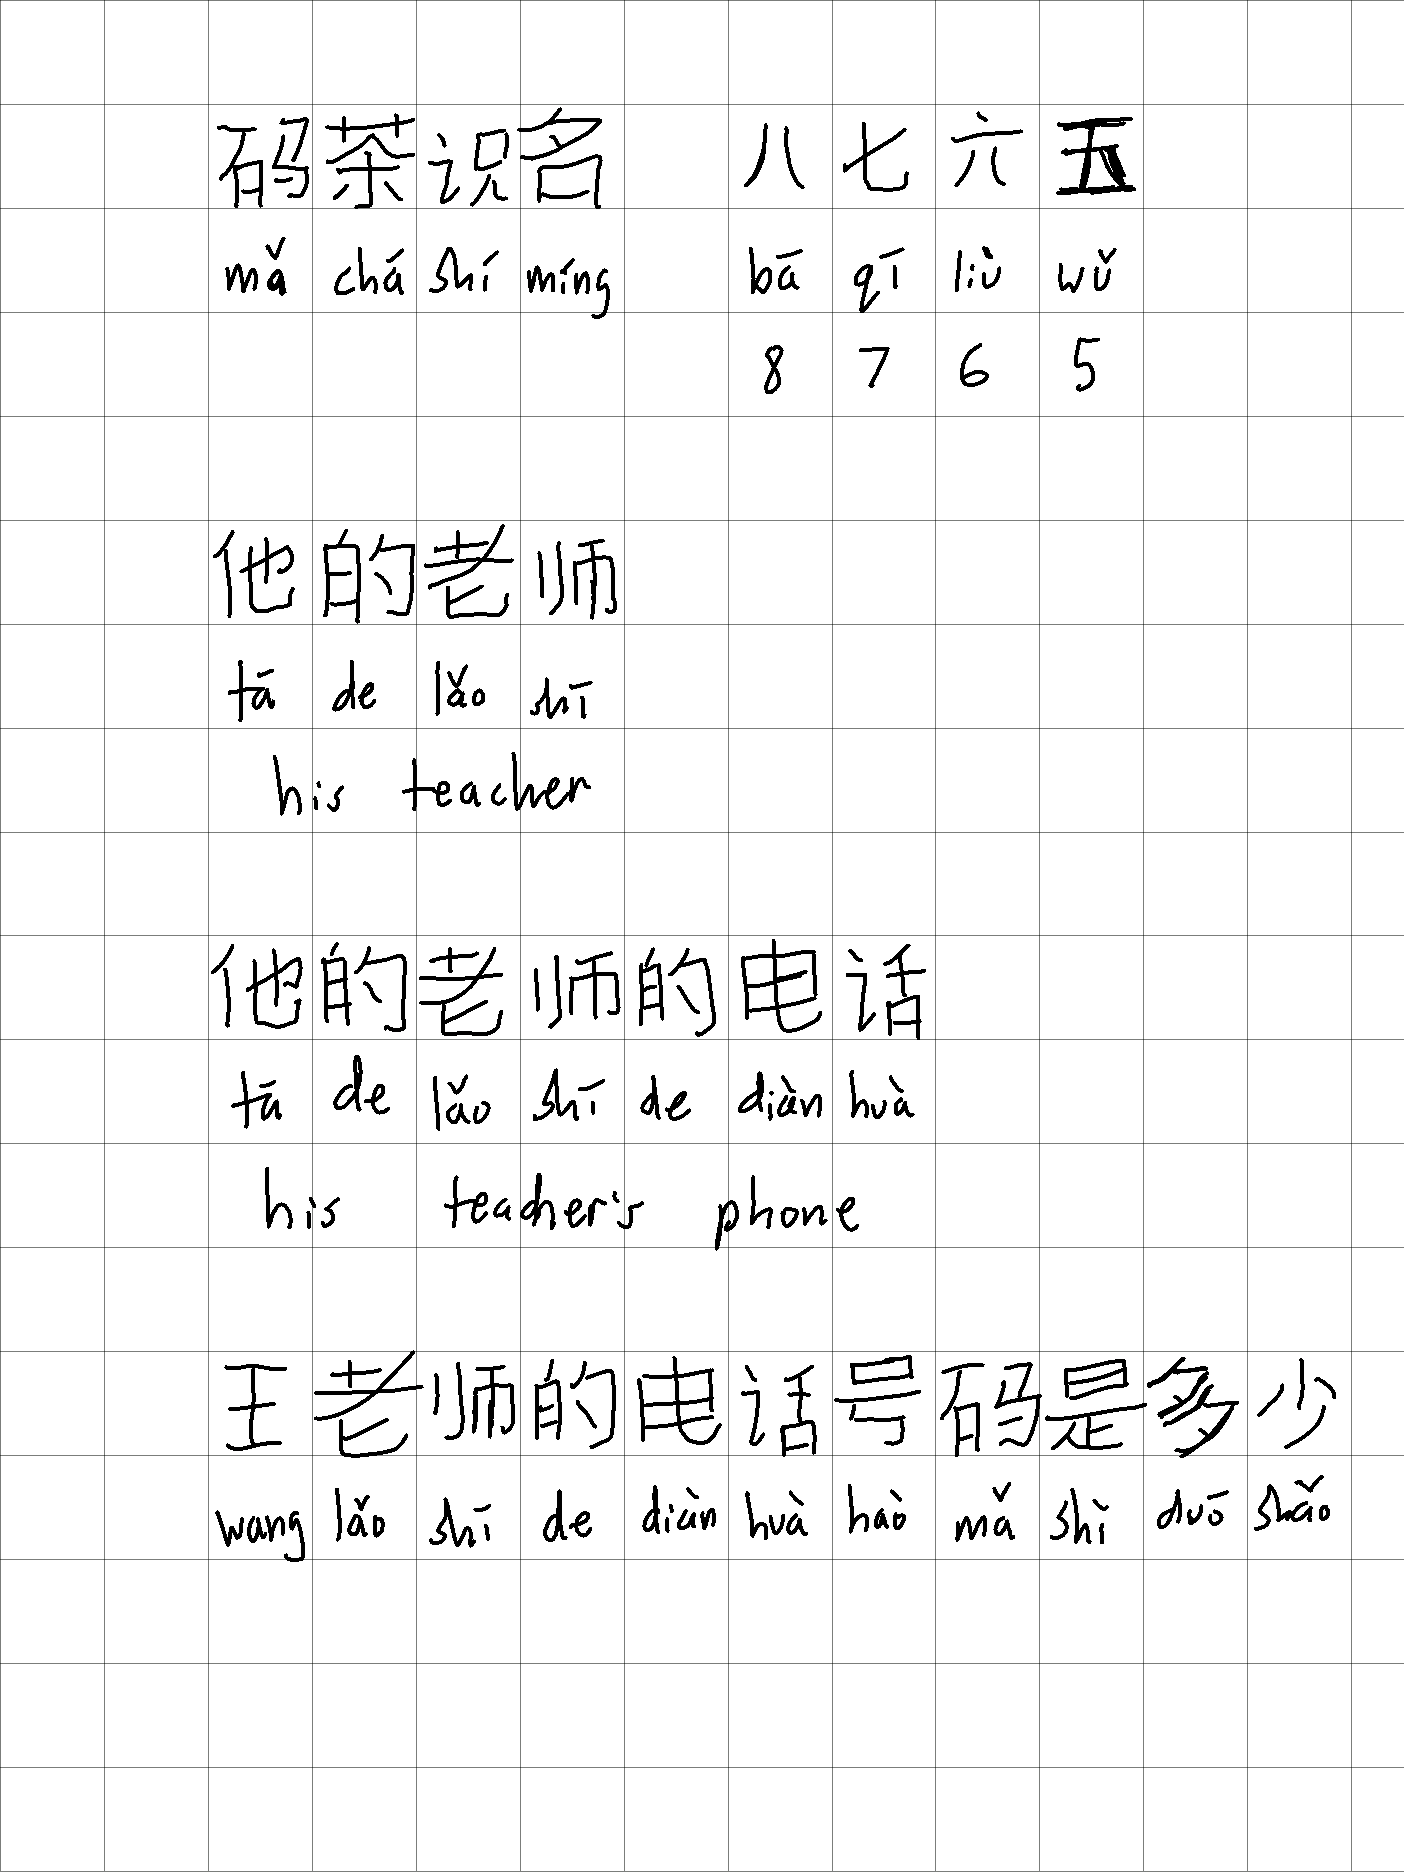 码茶识名 八七六五
mǎ chá shí míng bā qī liù wǔ
8 7 6 5
他的老师
tā de lǎo shī
his teacher
他的老师的电话
tā de lǎo shī de diàn huà
his teacher's phone
王老师的电话号码是多少
wang lǎo shī de diàn huà hào mǎ shì duō shǎo